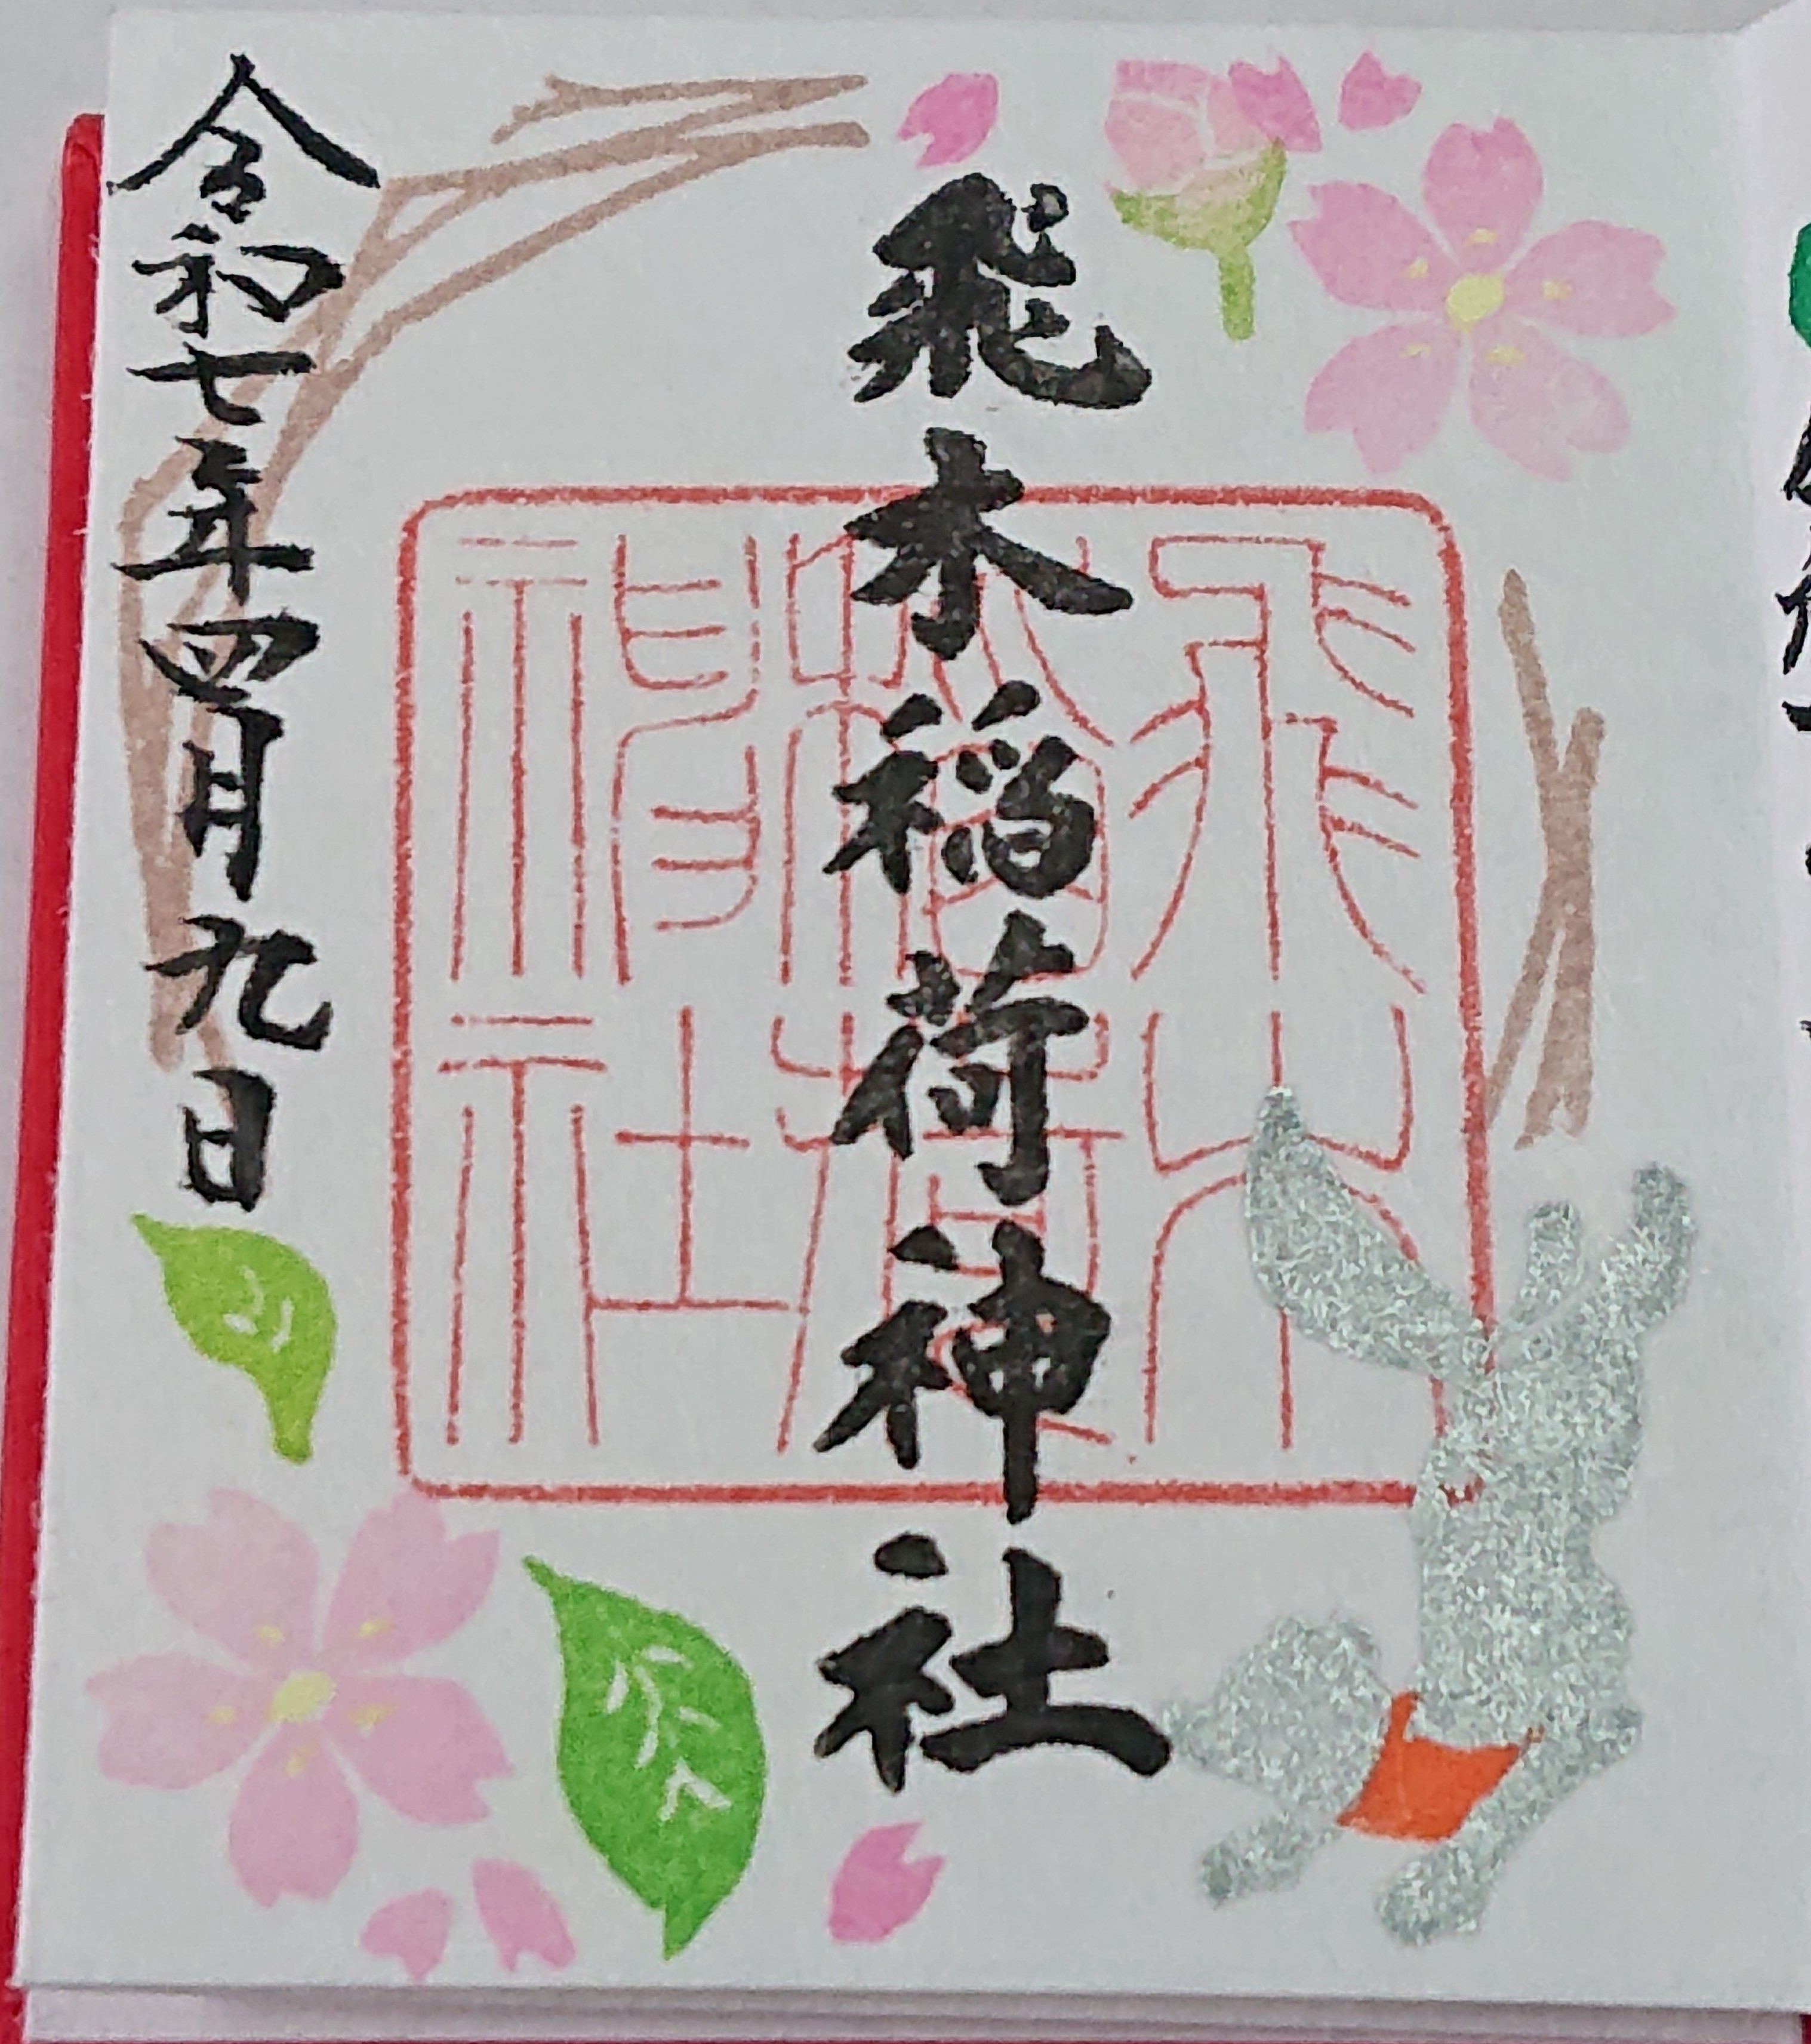 飛木稲荷神社
飛木稲荷神社
令和七年四月九日